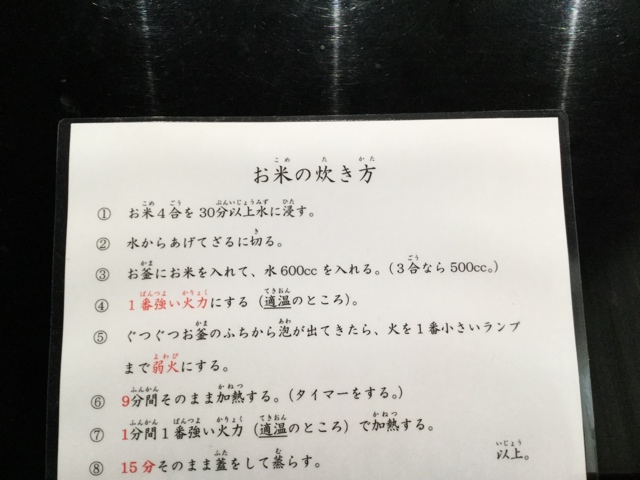 お米の炊き方
① お米4合を30分以上水に浸す。
② 水からあげてざるに切る。
③ お釜にお米を入れて、水600ccを入れる。(3合なら500cc。)
④ 1番強い火力にする(適温のところ)。
⑤ ぐつぐつお釜のふちから泡が出てきたら、火を1番小さいランプ
まで弱火にする。
⑥ 9分間そのまま加熱する。(タイマーをする。)
⑦ 1分間1番強い火力(適温のところ)で加熱する。
⑧ 15分そのまま蓋をして蒸らす。
以上。